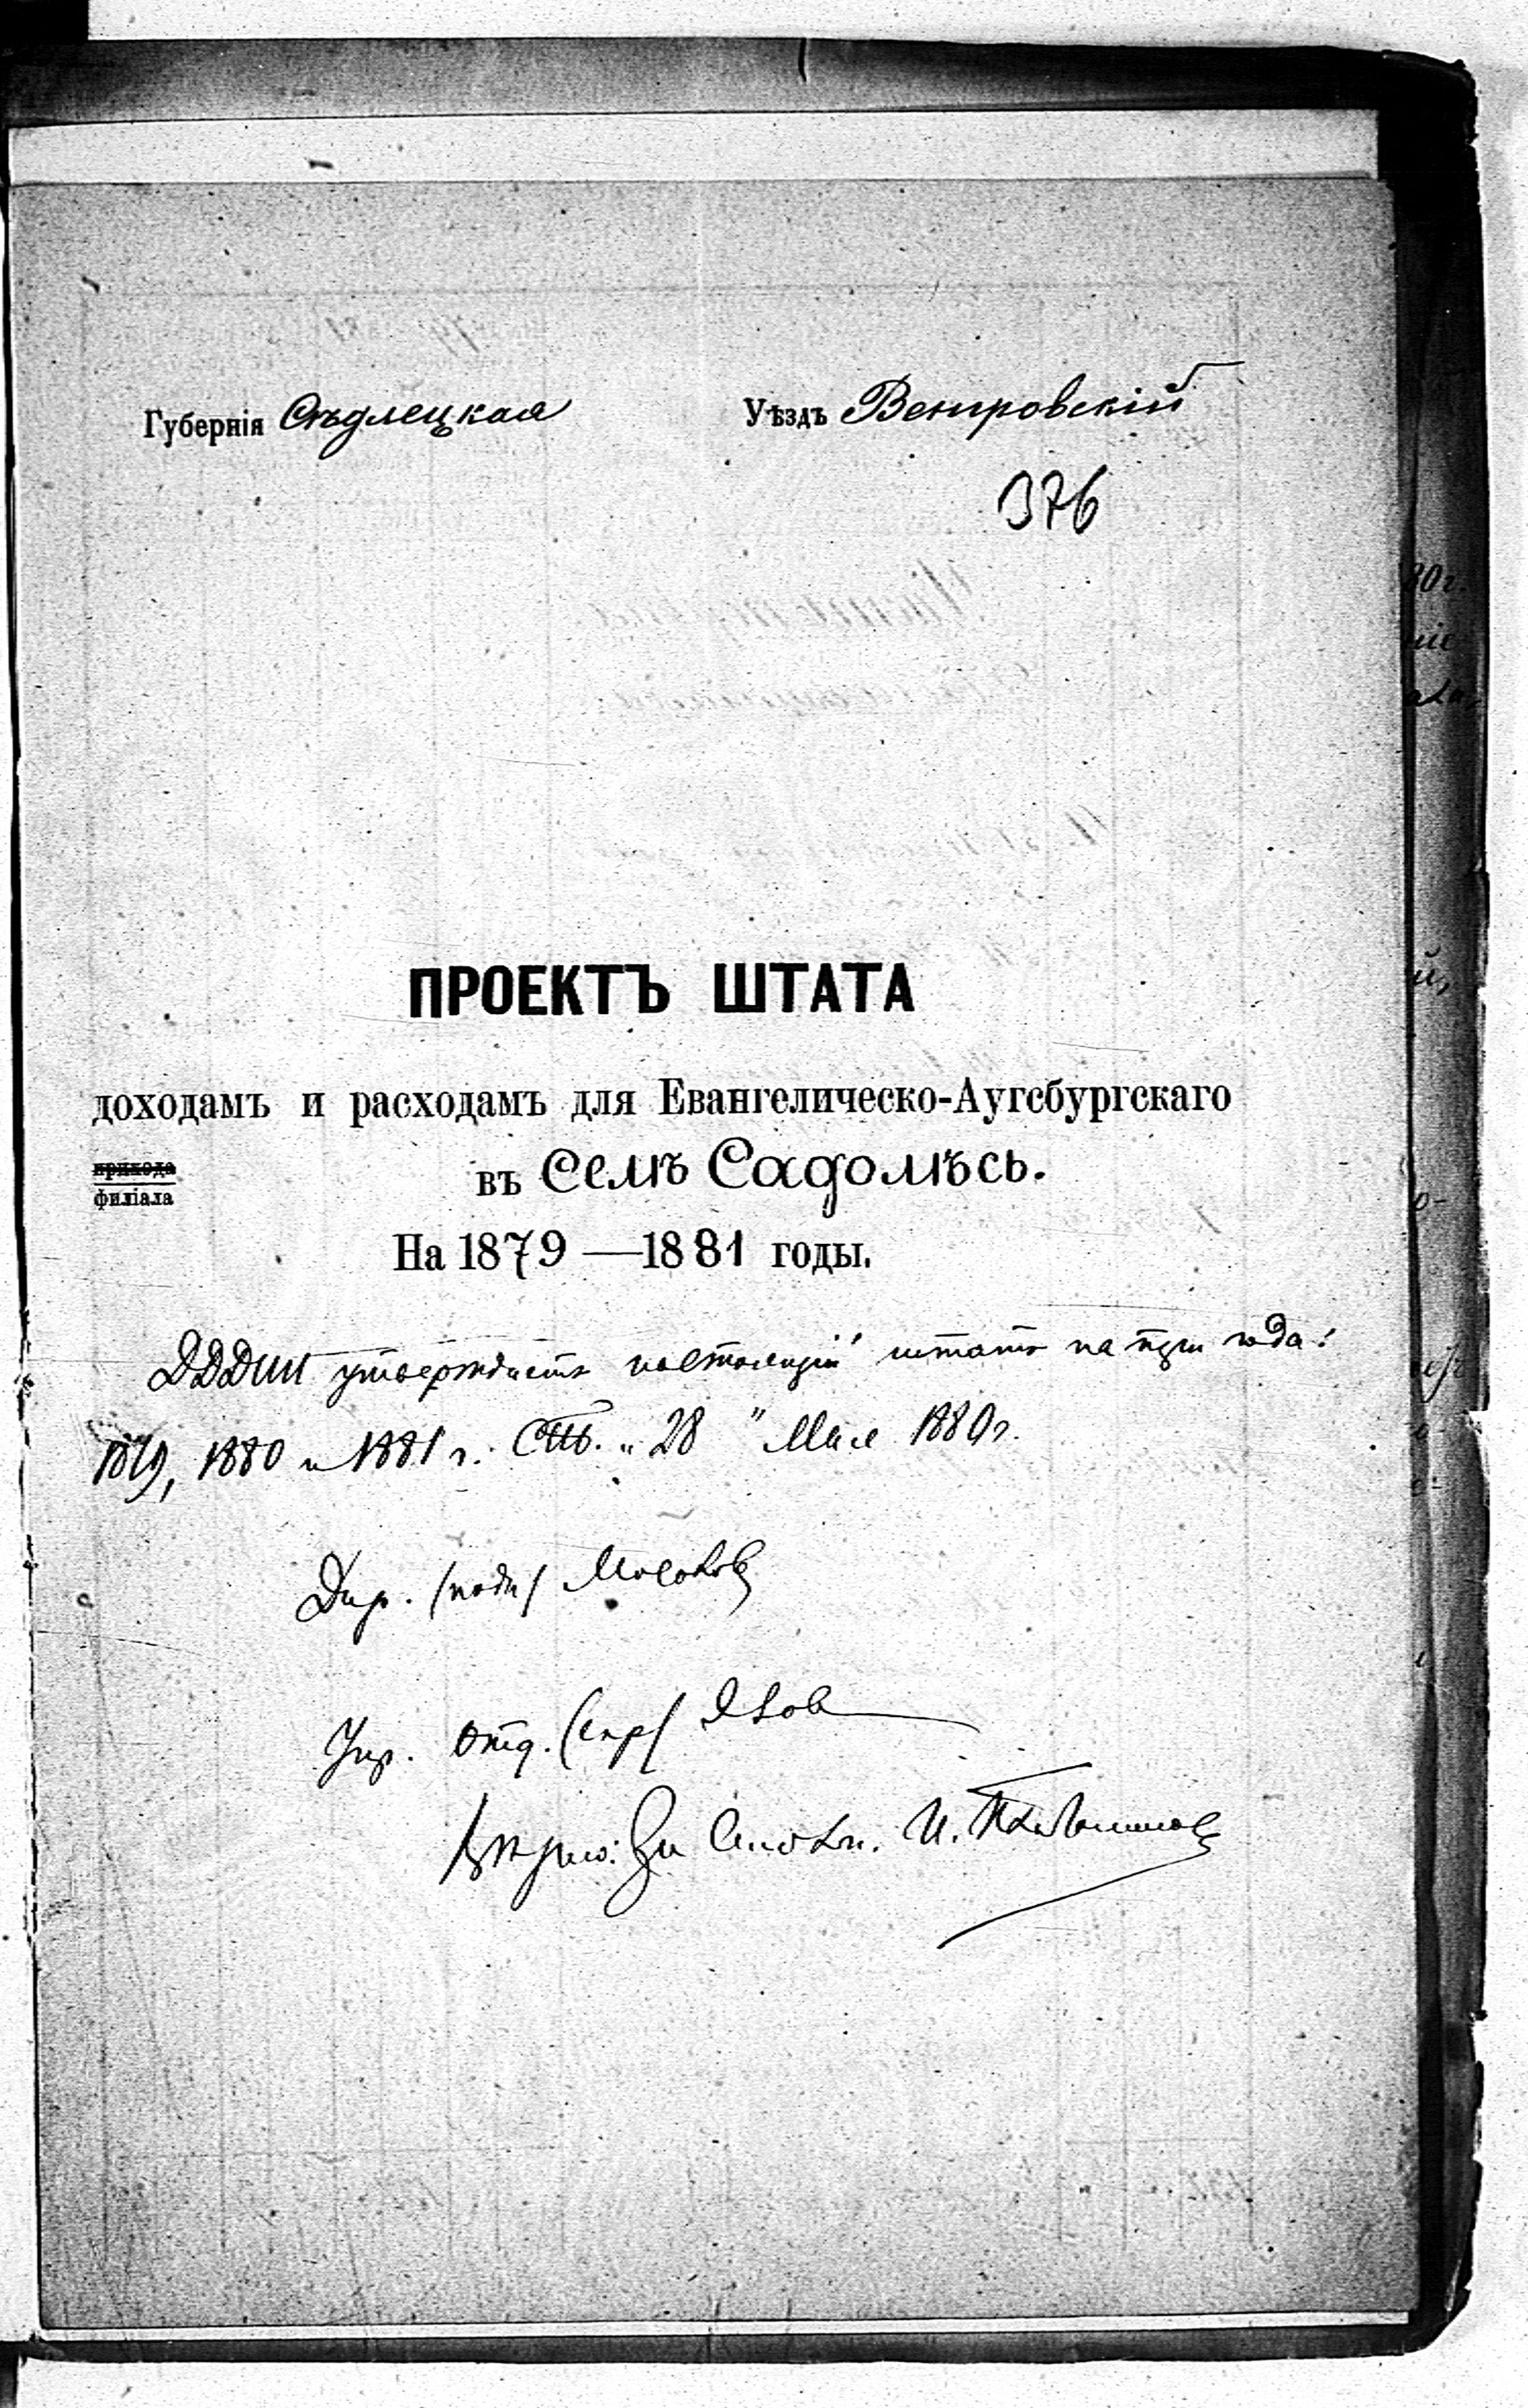 Губернія Сѣдлецкая Уѣздъ Венгровскій
376
ПРОЕКТЪ ШТАТА
доходамъ и расходамъ для Евангелическо-Аугсбургскаго
прихода
филіала
въ Селѣ Садолѣсь.
На 1879—1881 годы.
ДДДИИ утверждаетъ настоящій штатъ на три года:
1879, 1880 и 1881 г. СПб. „28" Мая 1880 г.
Дир. (подп)
Упр. отд. (скр)